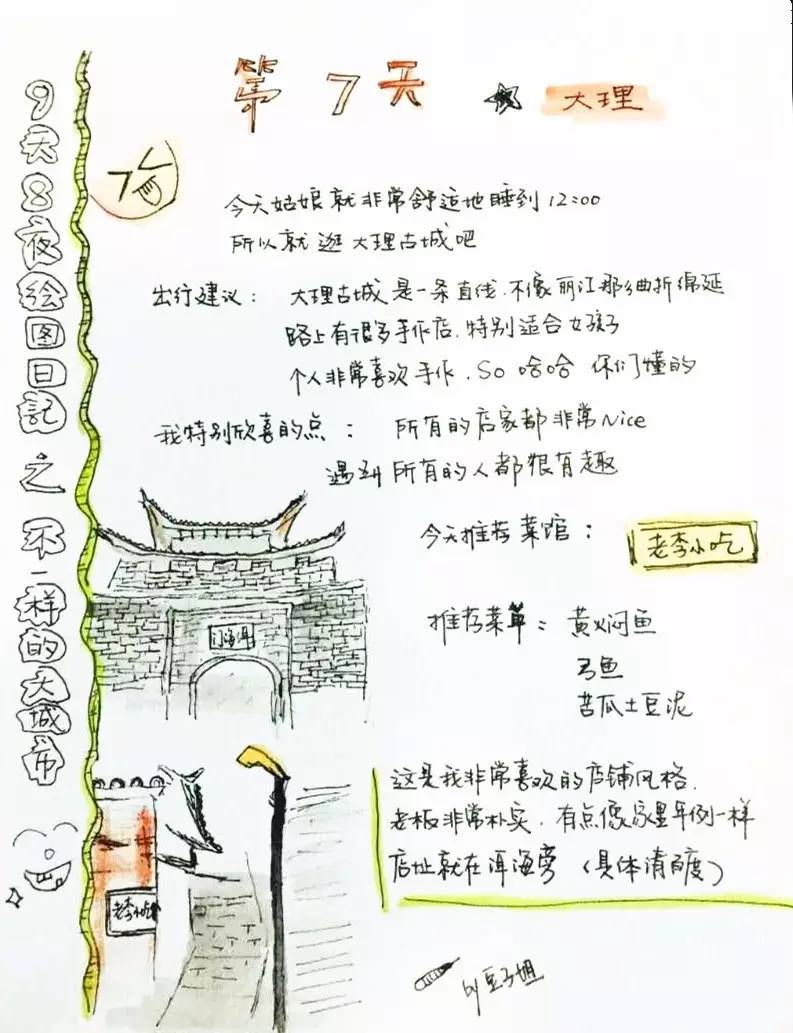 第7天 大理
9天8夜绘图日記之不一样的大城市
今天姑娘就非常舒适地睡到12:00
所以就逛大理古城吧
出行建议： 大理古城是一条直线.不像丽江那么曲折绵延
路上有很多手作店.特别适合女孩子
个人非常喜欢手作.So 哈哈 你们懂的
我特别欣喜的点： 所有的店家都非常Nice
遇到所有的人都很有趣
今天推荐菜馆： 老李小吃
推荐菜单： 黄焖鱼
弓鱼
苦瓜土豆泥
老李小吃
这是我非常喜欢的店铺风格.
老板非常朴实.有点像家里年例一样
店址就在洱海旁（具体请百度）
by 豆子姐